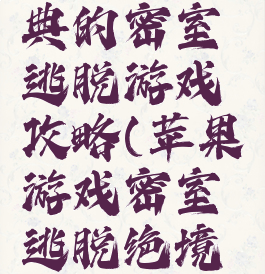 典的密室
逃脱游戏
攻略(苹果
游戏密室
逃脱绝境